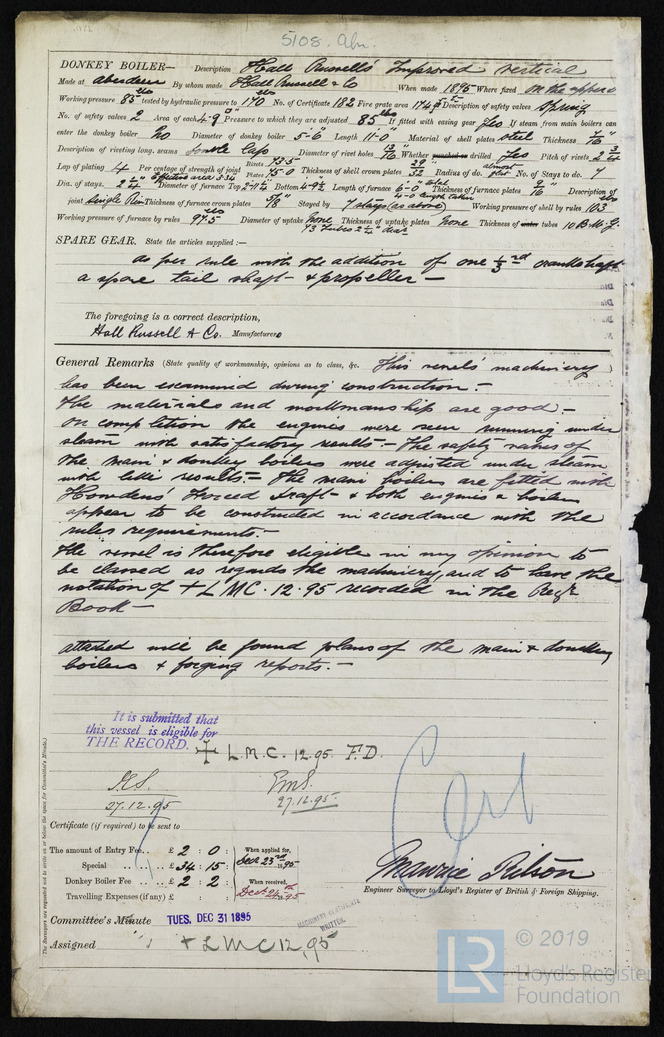 5108. Abn.
DONKEY BOILER— Description Hall Russell's Improved vertical
Made at Aberdeen By whom made Hall Russell & Co When made 1895 Where fixed on the upper
Working pressure 85 lbs tested by hydraulic pressure to 170 lbs No. of Certificate 183 Fire grate area Description of safety valves Spring
No. of safety valves 2 Area of each 4.9 Pressure to which they are adjusted 85 lbs If fitted with easing gear Yes If steam from main boilers can
enter the donkey boiler No Diameter of donkey boiler 5-6" Length 11-0" Material of shell plates steel Thickness 7/16"
Description of riveting long. seams Double Laps Diameter of rivet holes 13/16" Whether punched or drilled Yes Pitch of rivets 2 3/4
Lap of plating 4 Per centage of strength of joint Rivets 73.5 Plates 75.0 Thickness of shell crown plates Radius of do. almost flat No. of Stays to do. 7
Dia. of stays. Effective area Diameter of furnace Top Bottom 4-9½ Length of furnace 6-0" Thickness of furnace plates 9/16" Description of
joint Single Riv Thickness of furnace crown plates Stayed by 7 stays (as above) Working pressure of shell by rules 103
Working pressure of furnace by rules 97.5 lbs Diameter of uptake None Thickness of uptake plates None Thickness of water tubes 10 B.W.G.
73 Tubes 2½" diar
SPARE GEAR. State the articles supplied :—
as per rule with the addition of one 1/3rd crankshaft
a spare tail shaft & propeller —
The foregoing is a correct description,
Hall Russell & Co. Manufacturers
General Remarks (State quality of workmanship, opinions as to class, &c. This vessel's machinery
has been examined during construction.—
The materials and workmanship are good —
On completion the engines were seen running under
steam with satisfactory results.— The safety valves of
the main & donkey boilers were adjusted under steam
with like results.— The main boilers are fitted with
Howdens' Forced Draft & both engines & boilers
appear to be constructed in accordance with the
rules requirements.—
The vessel is therefore eligible in my opinion to
be classed as regards the machinery, and to have the
notation of + LMC. 12.95 recorded in the Regr
Book —
attached will be found plans of the main & donkey
boilers & forging reports.—
It is submitted that
this vessel is eligible for
THE RECORD. + L.M.C. 12.95 F.D.
27.12.95
27.12.95
Cert
Certificate (if required) to be sent to
The amount of Entry Fee.. £ 2 : 0 : When applied for,
Special .. .. £ 34 : 15 : Decr 23rd 1895
Donkey Boiler Fee .. £ 2 : 2 : When received,
Travelling Expenses (if any) £ : : Decr 24th 1895
Maurice Wilson
Engineer Surveyor to Lloyd's Register of British & Foreign Shipping.
MACHINERY CERTIFICATE
WRITTEN.
Committee's Minute TUES. DEC 31 1895
Assigned + LMC 12,95
The Surveyors are requested not to write on or below the space for Committee's Minute.)
LR © 2019
Lloyd's Register
Foundation